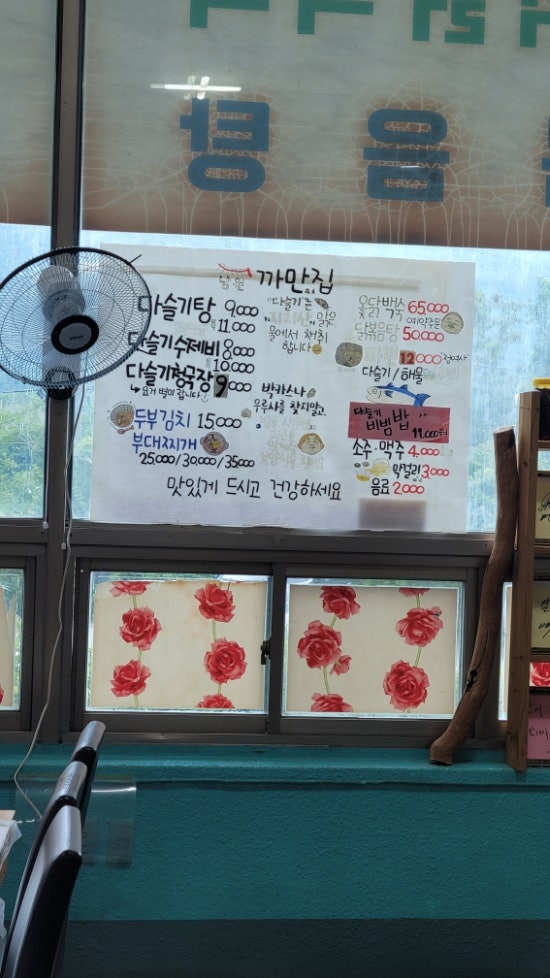 까만집
다슬기탕 9,000
특 11,000
다슬기수제비 8,000
10,000
다슬기청국장 9,000
↳ 요거 별미 랍니다
두부김치 15,000
부대찌개
25,000/30,000/35,000
"다슬기는
지리산" 맑은
물에서 채취
합니다
박카스나
우루사를 찾지말고,
옻닭백숙 65,000
예약주문
닭볶음탕 50,000
파전 12,000
다슬기/해물
다슬기
비빔밥 11,000원
소주·맥주 4,000
막걸리 3,000
음료 2,000
맛있게 드시고 건강하세요